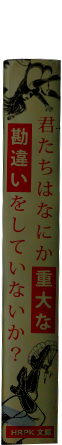 君たちはなにか重大な
勘違いをしていないか？
HARK文館